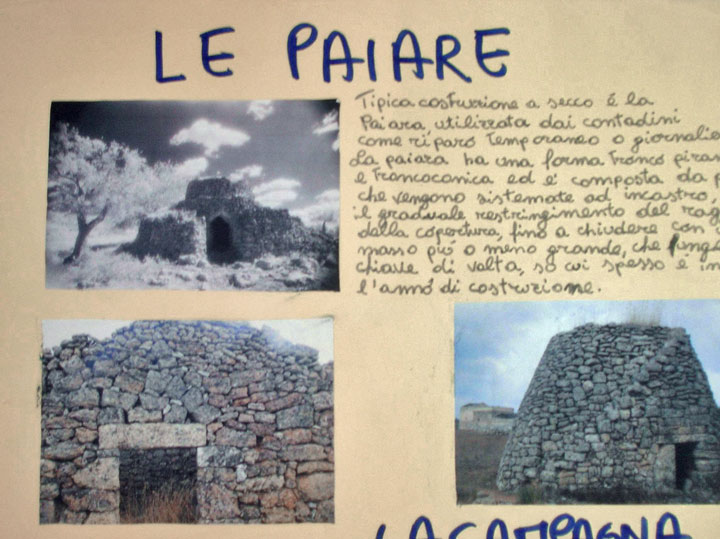 LE PAIARE
Tipica costruzione a secco é la
Paiara utilizzata dai contadini
come riparo temporaneo o giornalie
La paiara ha una forma tronco piram
e troncoconica ed e' composta da p
che vengono sistemate ad incastro,
il graduale restringimento del rag
della copertura, fino a chiudere con
masso piú o meno grande, che funga
chiave di volta, su cui spesso é in
l'anno di costruzione.
LA CAMPAGNA